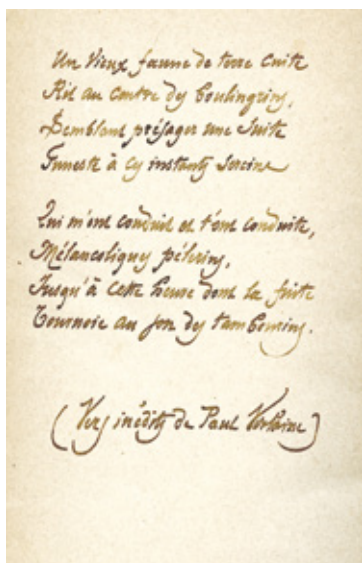 Un vieux faune de terre cuite
Rit au centre des boulingrins,
Semblant présager une suite
Funeste à ces instants sereins
Qui m'ont conduit et t'ont conduite,
Mélancoliques pélerins,
Jusqu'à cette heure dont la fuite
Tournoie au son des tambourins.
(Vers inédits de Paul Verlaine)